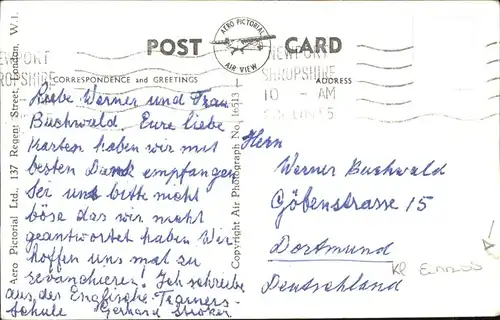 AERO PICTORIAL
AIR VIEW
POST CARD
NEWPORT
SHROPSHIRE
NEWPORT
SHROPSHIRE
10 - AM
CORRESPONDENCE and GREETINGS
ADDRESS
Liebe Werner und Frau
Buchwald. Eure liebe
Karten haben wir mit
besten Dank empfangen
Sei uns bitte nicht
böse das wir nicht
geantwortet haben Wir
hoffen uns mal zu
revanchieren! Ich schreibe
aus der Englische Trainers-
Schule Gerhard
Herrn
Werner Buchwald
Göbenstrasse 15
Dortmund
Deutschland
Kl
Aero Pictorial Ltd., 137 Regent Street, London, W.1.
Copyright Air Photograph No. 16513